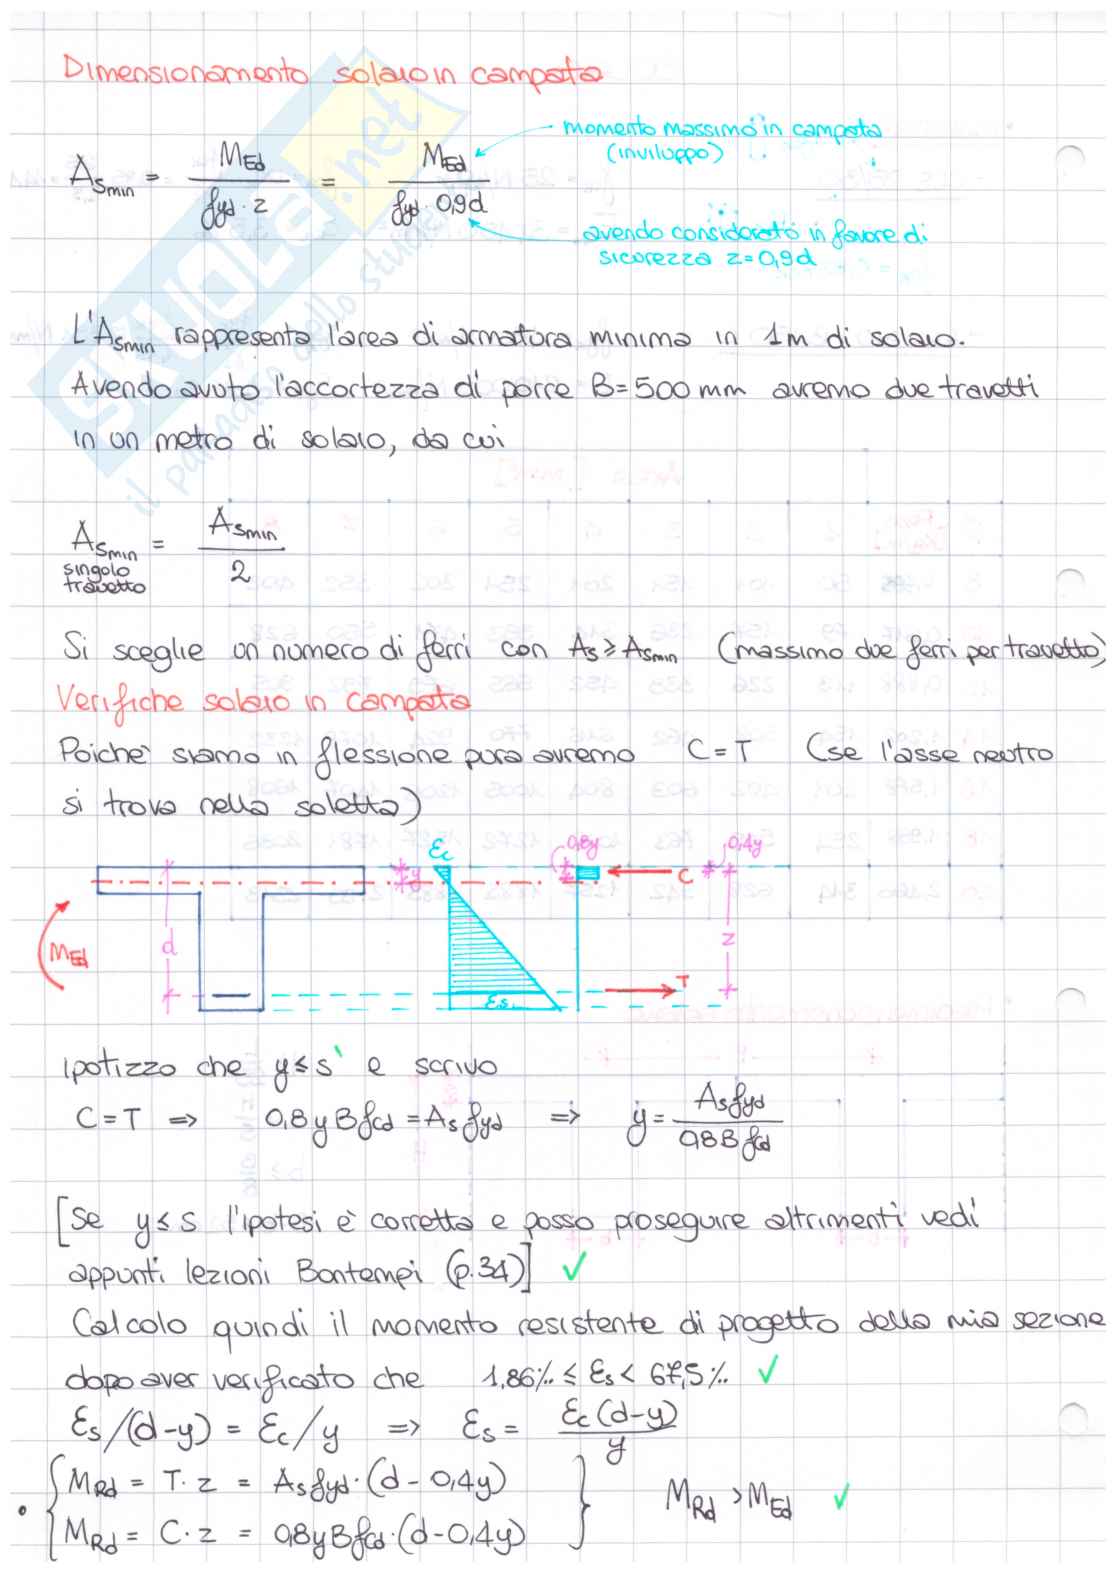 Dimensionamento solaio in campata
A_smin = M_Ed / (f_yd · z) = M_Ed / (f_yd · 0,9d)
momento massimo in campata
(inviluppo)
avendo considerato in favore di
sicurezza z=0,9d
L'A_smin rappresenta l'area di armatura minima in 1m di solaio.
Avendo avuto l'accortezza di porre B=500 mm avremo due travetti
in un metro di solaio, da cui
A_smin singolo travetto = A_smin / 2
Si sceglie un numero di ferri con A_s ≥ A_smin (massimo due ferri per travetto)
Verifiche solaio in campata
Poiché siamo in flessione pura avremo C=T (se l'asse neutro
si trova nella soletta)
M_Ed d y ε_c ε_s 0,8y C 0,4y z T
ipotizzo che y≤s e scrivo
C=T => 0,8yBf_cd = A_s f_yd => y = A_s f_yd / (0,8 B f_cd)
[Se y≤s l'ipotesi è corretta e posso proseguire altrimenti vedi
appunti lezioni Bontempi (p.34)] ✓
Calcolo quindi il momento resistente di progetto della mia sezione
dopo aver verificato che 1,86‰ ≤ ε_s < 67,5‰ ✓
ε_s/(d-y) = ε_c/y => ε_s = ε_c(d-y) / y
M_Rd = T·z = A_s f_yd·(d-0,4y)
M_Rd = C·z = 0,8yBf_cd·(d-0,4y)
M_Rd > M_Ed ✓
SKUOLA.net
il paradiso dello studente